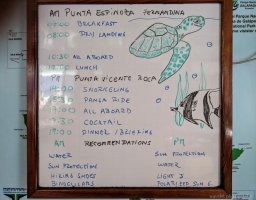 AM PUNTA ESPINOZA FERNANDINA
07:00 BREAKFAST
08:00 DRY LANDING
10:30 ALL ABOARD
12:30 LUNCH
PM PUNTA VICENTE ROCA
14:00 SNORKELING
PANGA RIDE
17:00 ALL ABOARD
COCKTAIL
19:00 DINNER / BRIEFING
AM RECOMENDATIONS PM
WATER SUN PROTECTION
SUN PROTECTION WATER
HIKING SHOES LIGHT J
BINOCULARS POLARIZED SUN G